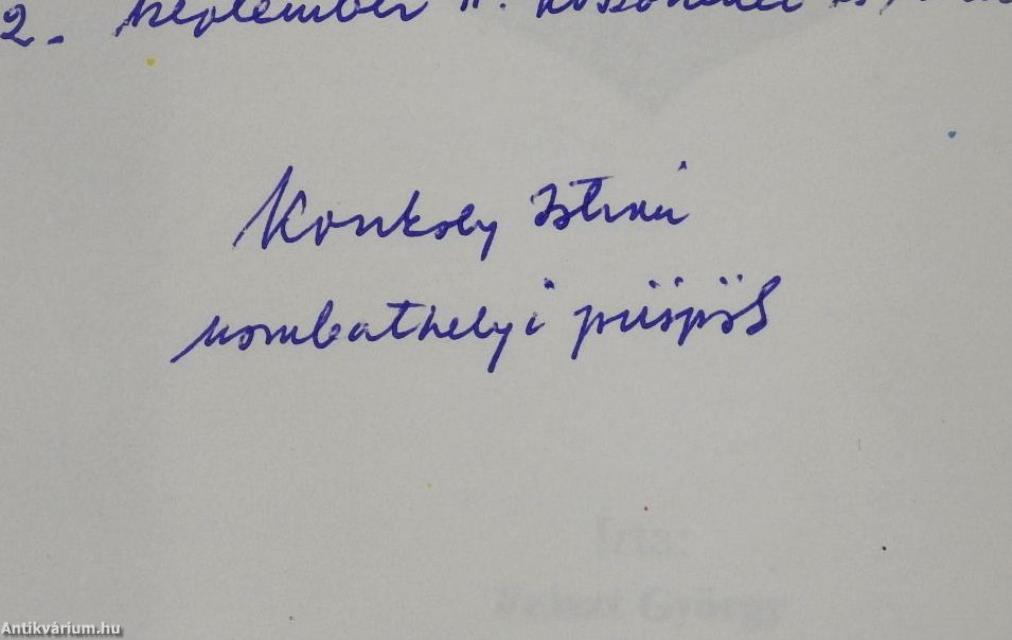 2. szeptember 11.
Konkoly István
szombathelyi püspök
Írta:
Antikvárium.hu